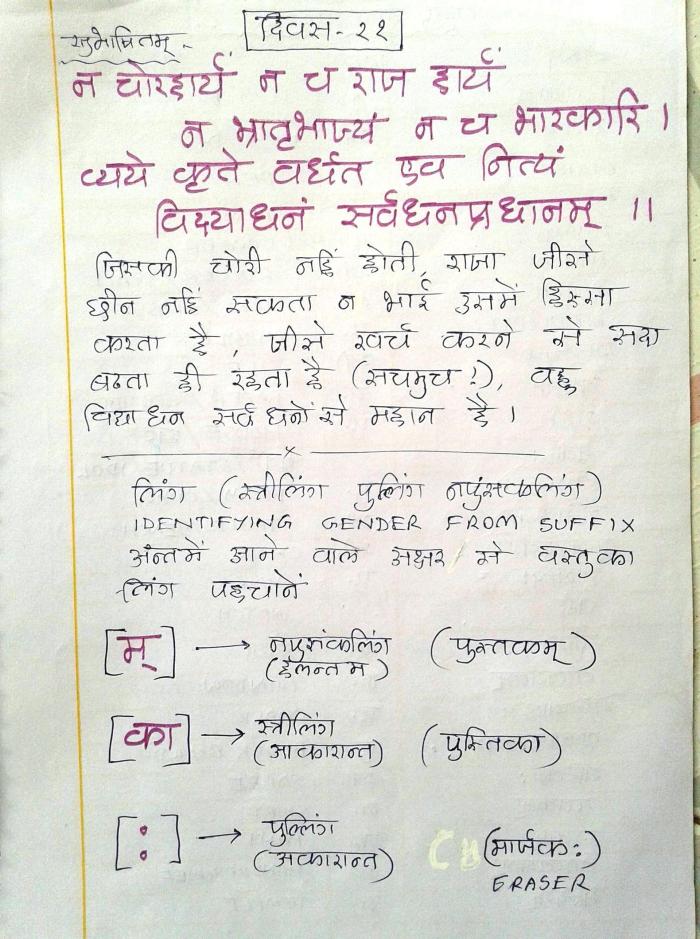 दिवस - २१
सुभाषितम् -
न चोरहार्यं न च राज हार्यं
न भ्रातृभाज्यं न च भारकारि ।
व्यये कृते वर्धत एव नित्यं
विद्याधनं सर्वधनप्रधानम् ॥
जिसकी चोरी नहिं होती, राजा जीसे
छीन नहिं सकता न भाई उसमें हिस्सा
करता है, जीसे खर्च करने से सदा
बढता ही रहता है (सचमुच !), वह
विद्याधन सर्व धनों से महान है ।
लिंग (स्त्रीलिंग पुल्लिंग नपुंसकलिंग)
IDENTIFYING GENDER FROM SUFFIX
अंन्तमें आने वाले अक्षर से वस्तुका
लिंग पहचानें
[म्] → नपुसंकलिंग (पुस्तकम्)
(हलन्त म)
[का] → स्त्रीलिंग
(आकारान्त) (पुस्तिका)
[:] → पुल्लिंग
(अकारान्त) (मार्जक:)
ERASER